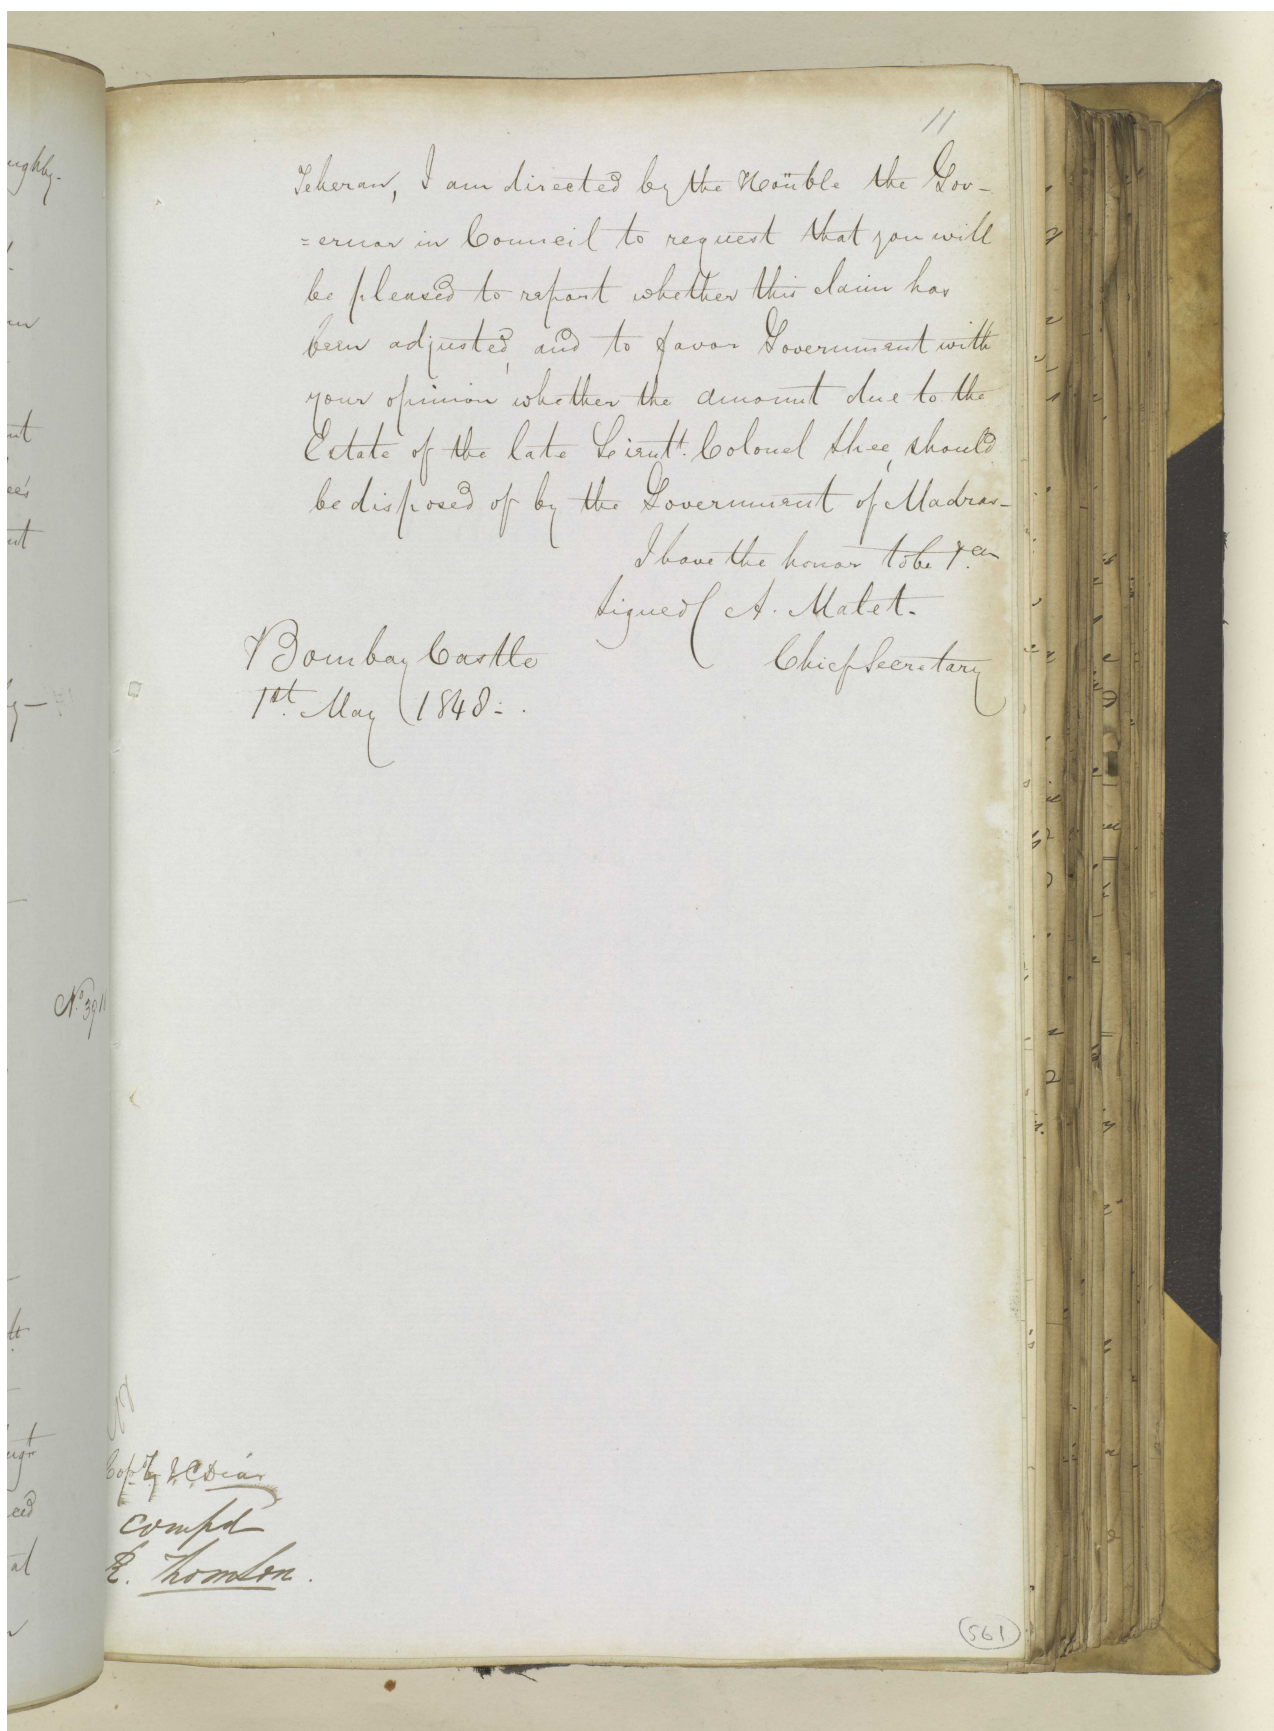 11
Teheran, I am directed by the Honble the Gov-
=ernor in Council to request that you will
be pleased to report whether this claim has
been adjusted, and to favor Government with
your opinion whether the amount due to the
Estate of the late Lieutt. Colonel Shee, should
be disposed of by the Government of Madras-
I have the honor to be &ca
Signed/ A. Malet.
Chief Secretary
Bombay Castle
1st. May 1848-.
No. 39
Copd. by
Compd
R. Thomson.
561